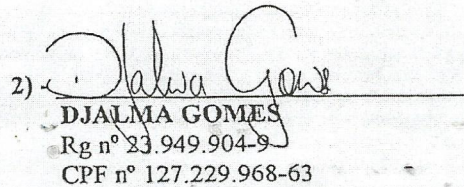 2) Djalma Gomes
DJALMA GOMES
Rg nº 23.949.904-9
CPF nº 127.229.968-63